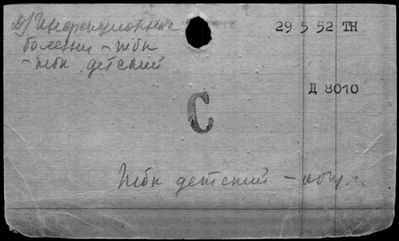 Д) Инфекционные 29 5 52 ТН
болезни - тбк
- тбк детский
Д 8010
С
Тбк детский - общ.